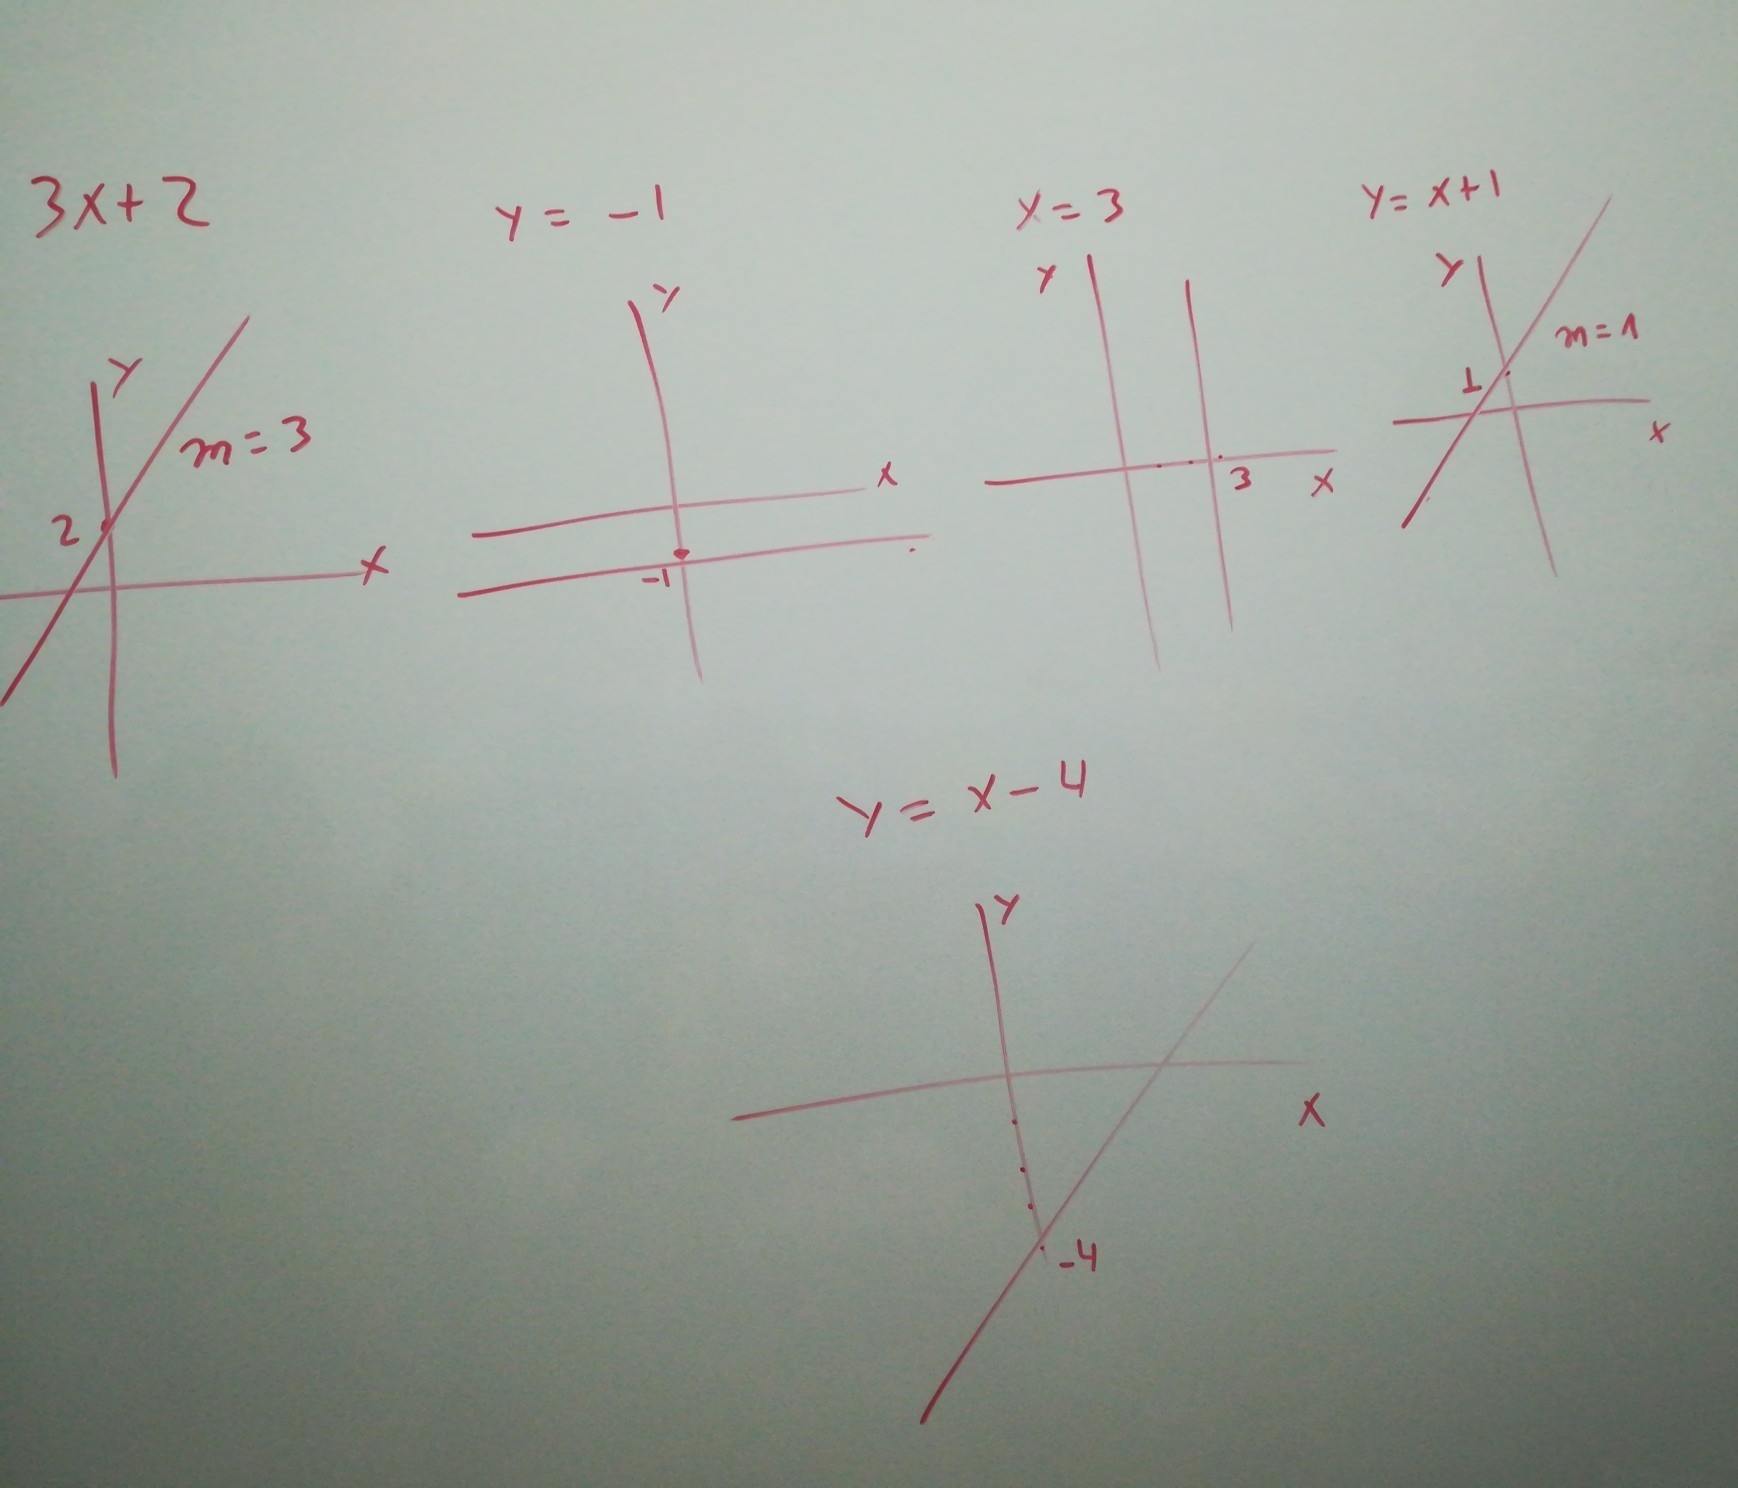 3x+2
y = -1
x = 3
y = x+1
y
m = 3
2
x
y
x
-1
y
3
x
y
m = 1
1
x
y = x - 4
y
x
-4